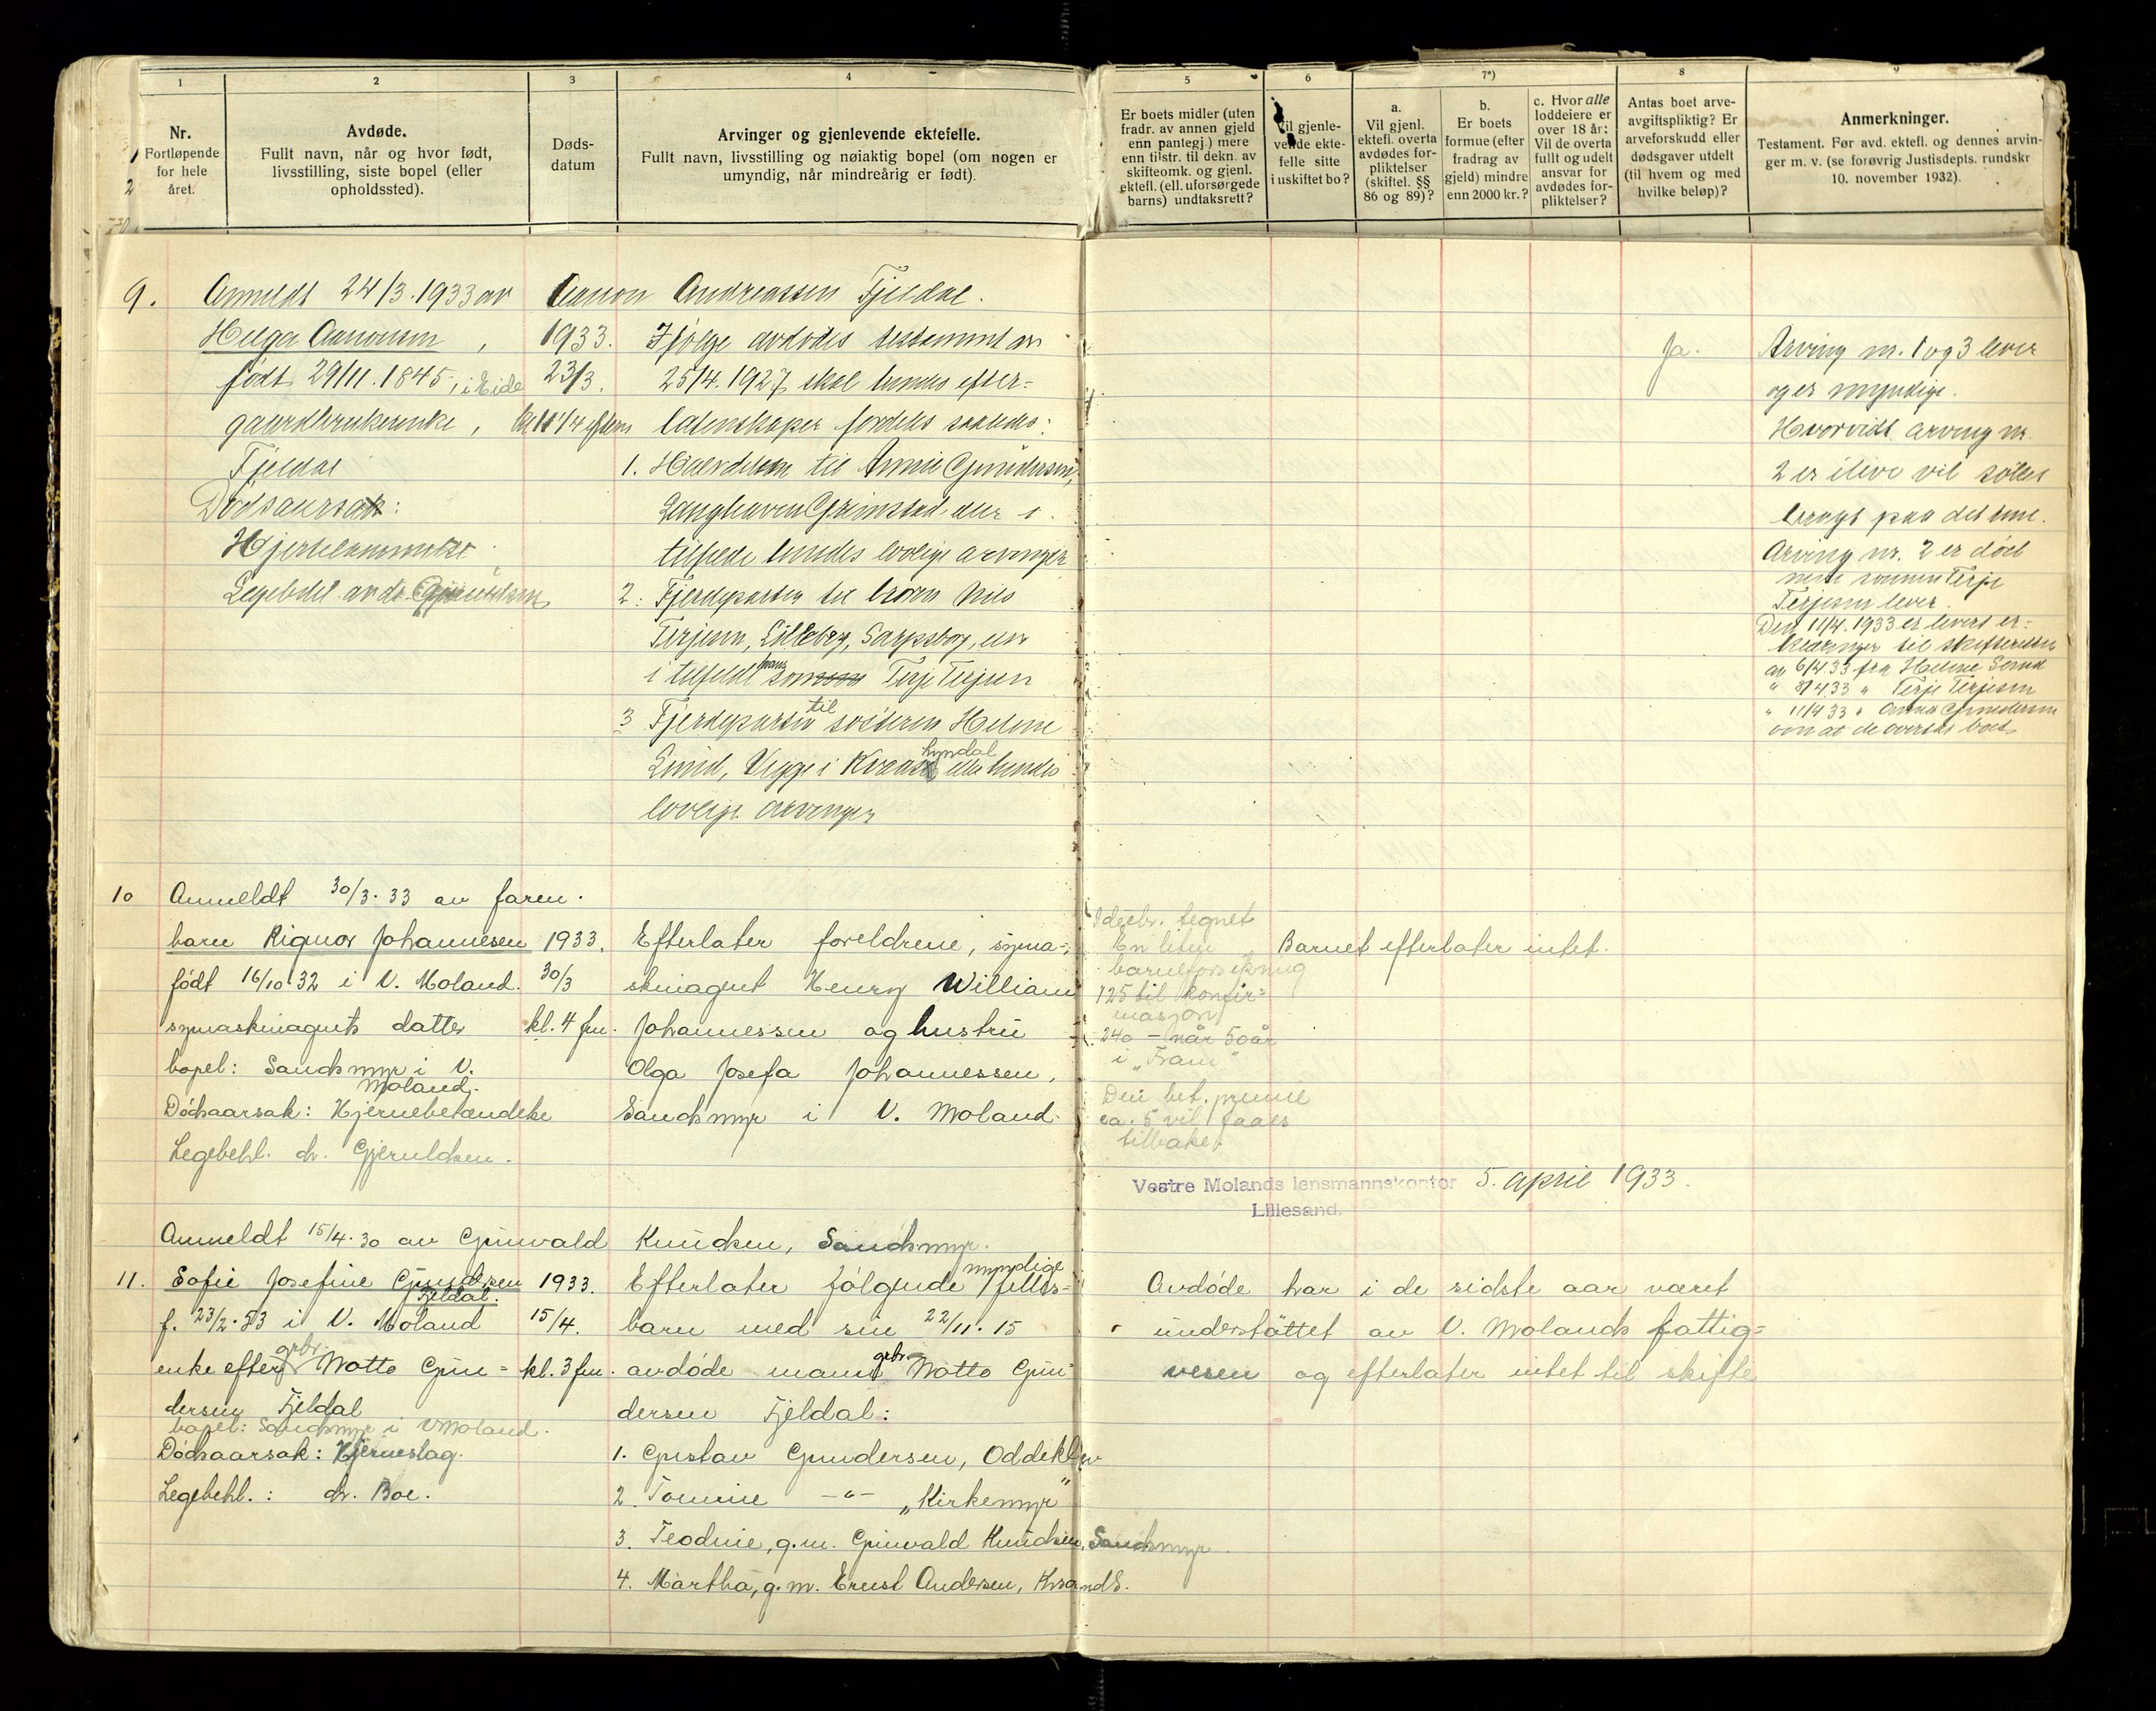 1
Nr.
Fortløpende
for hele
året.
2
Avdøde.
Fullt navn, når og hvor født,
livsstilling, siste bopel (eller
opholdssted).
3
Døds-
datum
4
Arvinger og gjenlevende ektefelle.
Fullt navn, livsstilling og nøiaktig bopel (om nogen er
umyndig, når mindreårig er født).
5
Er boets midler (uten
fradr. av annen gjeld
enn pantegj.) mere
enn tilstr. til dekn. av
skifteomk. og gjenl.
ektefl. (ell. uforsørgede
barns) undtaksrett?
6
Vil gjenle-
vende ekte-
felle sitte
i uskiftet bo?
7*)
a.
Vil gjenl.
ektefl. overta
avdødes for-
pliktelser
(skiftel. §§
86 og 89)?
b.
Er boets
formue (efter
fradrag av
gjeld) mindre
enn 2000 kr.?
c. Hvor alle
loddeiere er
over 18 år:
Vil de overta
fullt og udelt
ansvar for
avdødes for-
pliktelser?
8
Antas boet arve-
avgiftspliktig? Er
arveforskudd eller
dødsgaver utdelt
(til hvem og med
hvilke beløp)?
9
Anmerkninger.
Testament. Før avd. ektefl. og dennes arvin-
ger m. v. (se forøvrig Justisdepls. rundskr
10. november 1932).
9. Anmeldt 24/3.1933 av Aanon Andreassen Fjeldal.
Helga Aanonsen,
født 29/11.1845, i Eide
gaardbrukerenke,
Fjeldal
Dødsaarsak:
Legebehl. av dr. Gjeruldsen
1933.
23/3.
kl 11 1/4 eftm
Ifølge avdødes testament av
25/4.1927 skal hendes efter-
latenskaper fordeles saaledes:
1. Halvdelen til Annie Gundersen,
Langhaven Grimstad eller i
tilfelde hendes lovlige arvinger
2. Fjerdeparten til broren Nils
Terjesen, Lilleborg, Sarpsborg, eller
i tilfelde hans sønnen Terje Terjesen
3 Fjerdeparten til søsteren Helene
Lund, Vegge i Kvas hyndal eller hendes
lovlige arvinger
Ja.
Arving nr. 1 og 3 lever
og er myndige.
Hvorvidt arving nr.
2 er ilive vil søkes
bragt paa det rene.
Arving nr. 2 er død
men sønnen Terje
Terjesen lever.
Den 11/4.1933 er levert er-
klæringer til skifteretten
av 6/4.33 fra Helene Lund
" 8/4 33 " Terje Terjesen
" 11/4 33 " Anna Gundersen
om at de overtar boet
10 Anmeldt 30/3.33 av faren.
barn Rigmor Johannesen
født 16/10 32 i V. Moland.
symaskinagents datter
bopel: Sandsmyr i V.
Moland.
Dødsaarsak: Hjernebetændelse
Legebehl. dr. Gjeruldsen.
1933.
30/3
kl. 4 fm.
Efterlater foreldrene, syma-
skinagent Henry William
Johannessen og hustru
Olga Josefa Johannessen,
Sandsmyr i V. Moland.
I decbr. tegnet
En liten
barneforsikring
125 til konfir-
masjon
240 - når 50 år
i "Fram"
Den bet. premie
ca. 5 vil faaes
tilbake.
Barnet efterlater intet.
Vestre Molands lensmannskontor 5. april 1933.
Lillesand.
Anmeldt 15/4.30 av Gunvald Knudsen, Sandsmyr.
11. Sofie Josefine Gundersen
Fjeldal.
f. 23/2.53 i V. Moland
enke efter gbr. Notto Gun-
dersen Fjeldal
bopel: Sandsmyr i V Moland.
Dødsaarsak: Hjerneslag.
Legebehl.: dr. Boe.
1933.
15/4.
kl. 3 fm.
Efterlater følgende myndige felles-
barn med sin 22/11.15
avdøde mann gbr. Notto Gun-
dersen Fjeldal:
1. Gustav Gundersen, Oddekleiv
2. Tomine -"- "Kirkemyr"
3. Teodine, g.m. Gunvald Knudsen, Sandsmyr.
4. Martha, g.m. Ernst Andersen, KrsandS.
Avdøde har i de sidste aar været
understøttet av V. Molands fattig-
vesen og efterlater intet til skifte